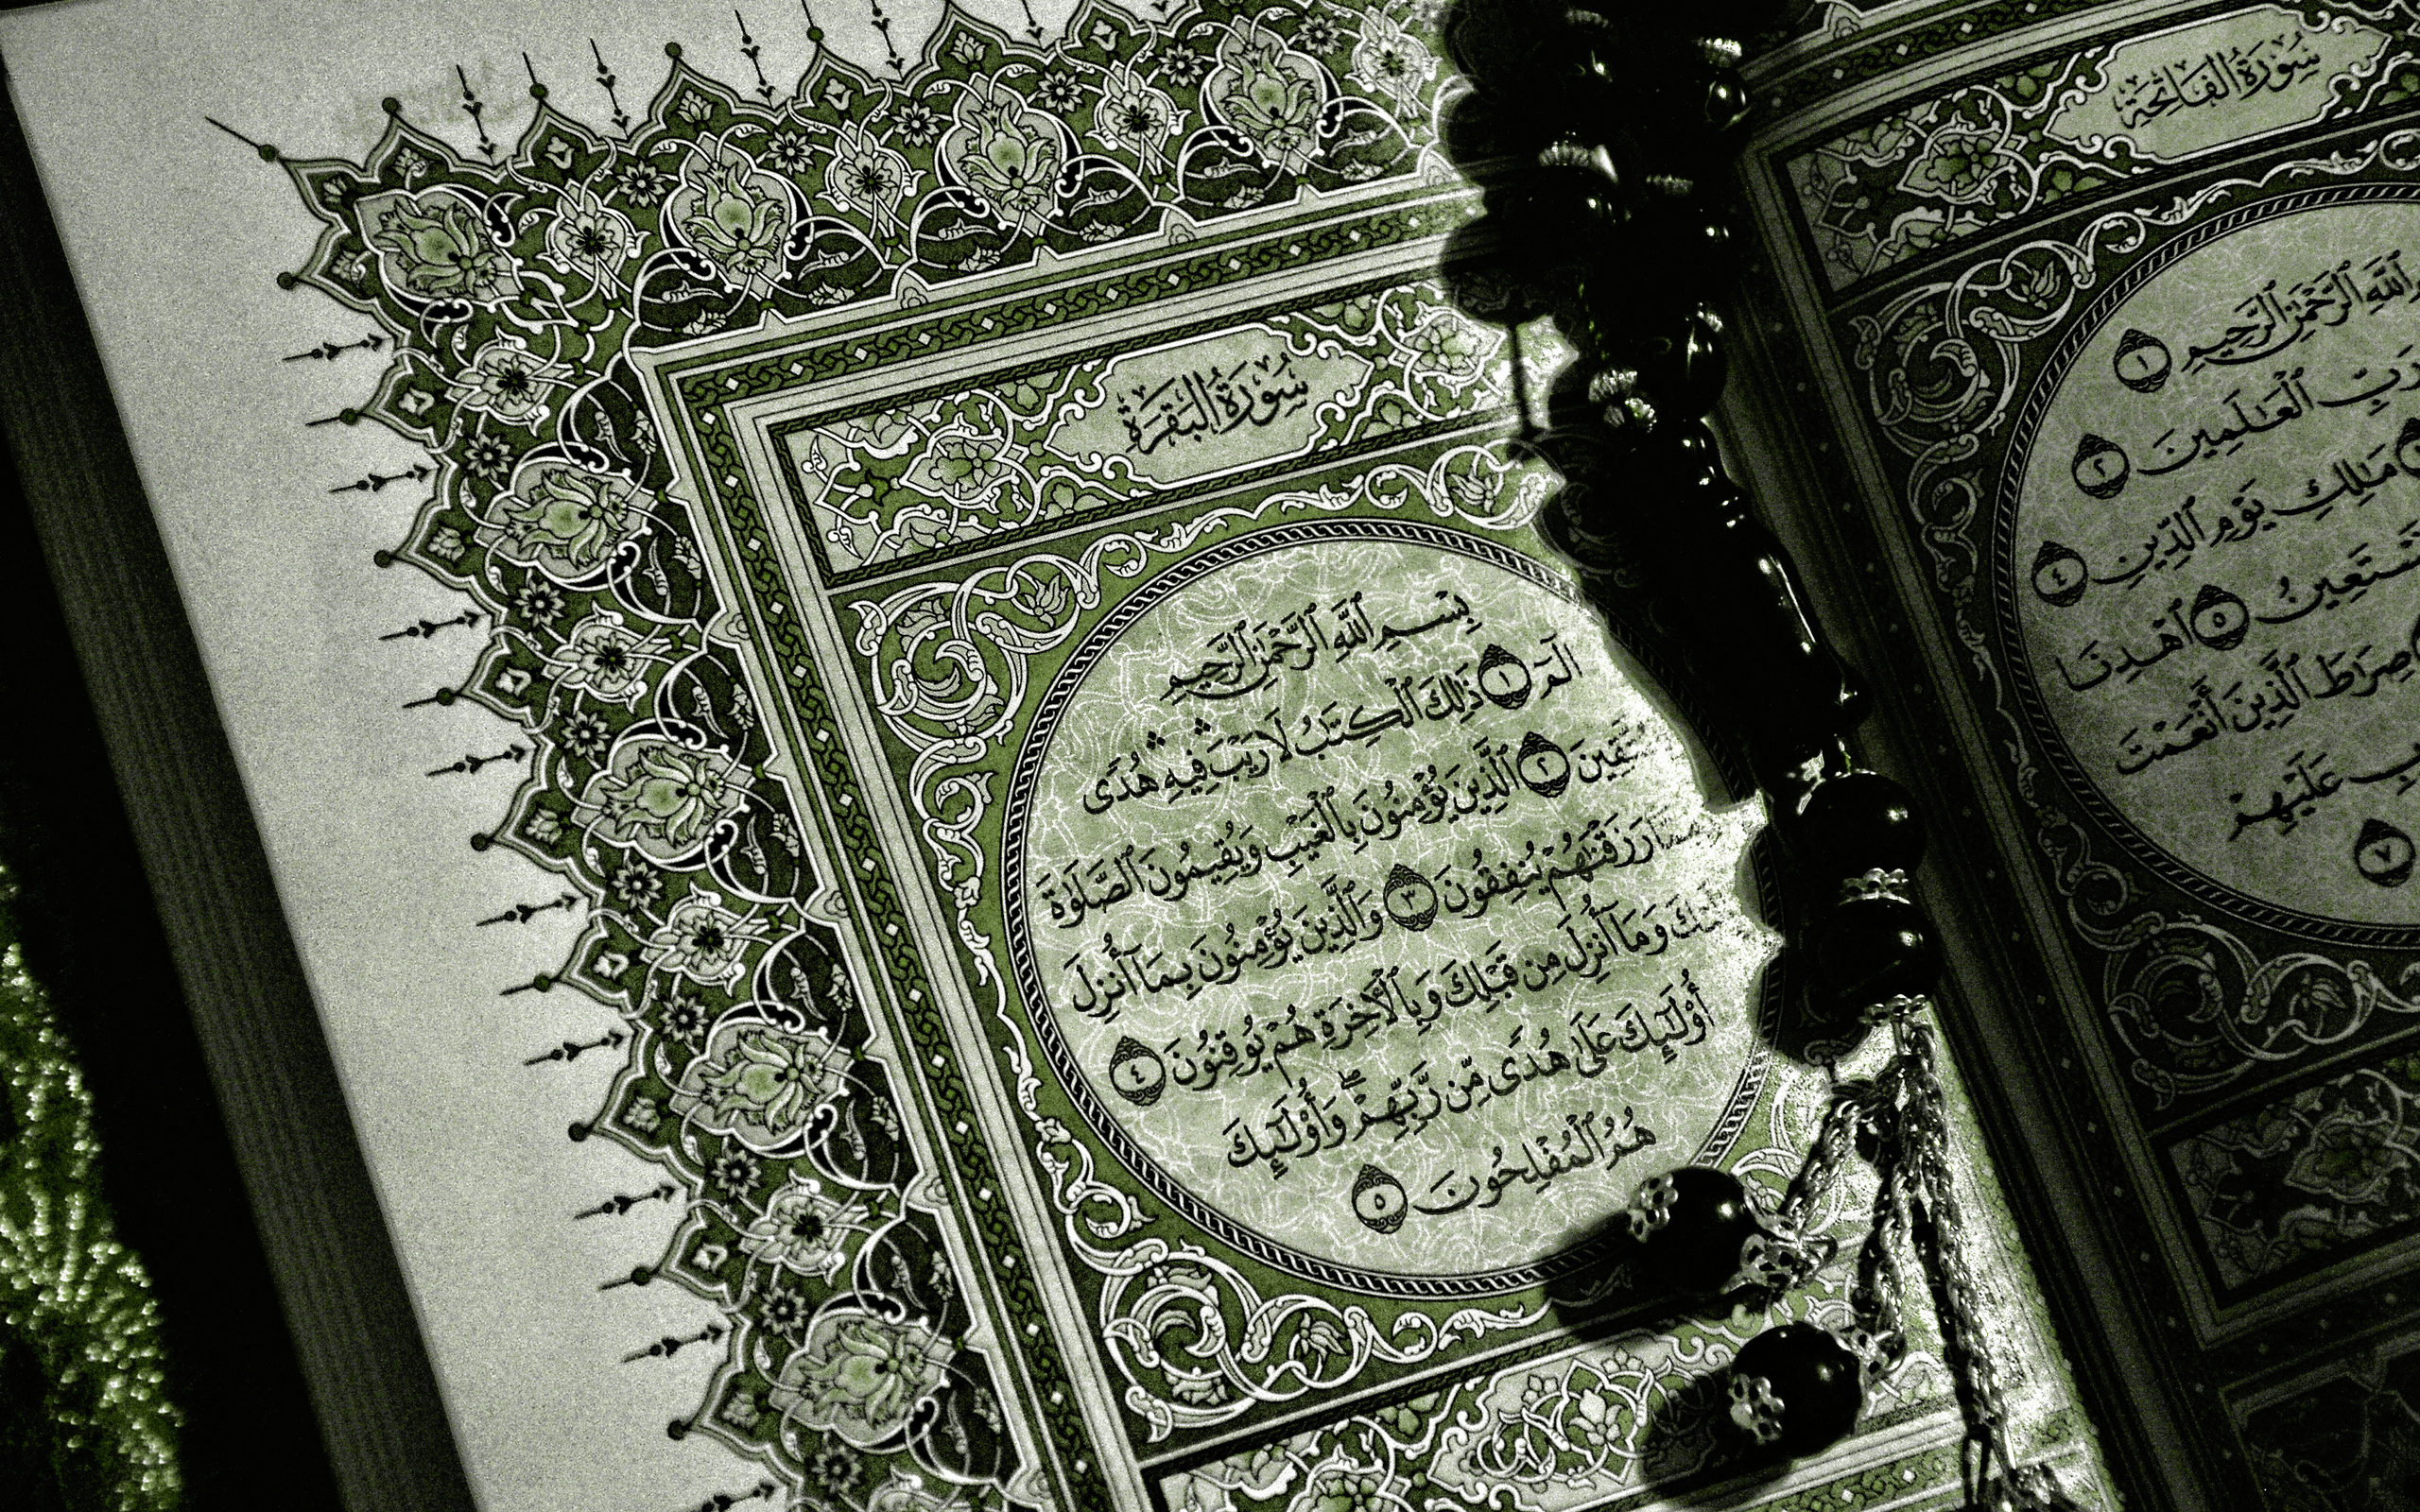 سُورَةُ الفَاتِحَةِ
ٱللَّهِ ٱلرَّحْمَٰنِ ٱلرَّحِيمِ ١
رَبِّ ٱلْعَٰلَمِينَ ٢
مَٰلِكِ يَوْمِ ٱلدِّينِ ٤
نَسْتَعِينُ ٥ ٱهْدِنَا
صِرَٰطَ ٱلَّذِينَ أَنْعَمْتَ
عَلَيْهِمْ
٧
سُورَةُ البَقَرَةِ
بِسْمِ ٱللَّهِ ٱلرَّحْمَٰنِ ٱلرَّحِيمِ
الٓمٓ ١ ذَٰلِكَ ٱلْكِتَٰبُ لَا رَيْبَ ۛ فِيهِ ۛ هُدًى
ٱلَّذِينَ يُؤْمِنُونَ بِٱلْغَيْبِ وَيُقِيمُونَ ٱلصَّلَوٰةَ ٢
رَزَقْنَٰهُمْ يُنفِقُونَ ٣ وَٱلَّذِينَ يُؤْمِنُونَ بِمَآ أُنزِلَ
وَمَآ أُنزِلَ مِن قَبْلِكَ وَبِٱلْءَاخِرَةِ هُمْ يُوقِنُونَ ٤
أُو۟لَٰٓئِكَ عَلَىٰ هُدًى مِّن رَّبِّهِمْ ۖ وَأُو۟لَٰٓئِكَ
هُمُ ٱلْمُفْلِحُونَ ٥